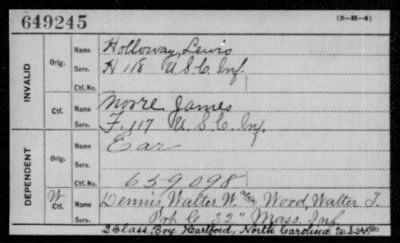 649245
(3-H-4)
INVALID
Orig.
Name Holloway, Lewis
Serv. H 118 U S C Inf.
Ctf. No.
Ctf.
Name Moore James
Serv. F. 117 U. S. C. Inf.
DEPENDENT
Orig.
Name Ear
Serv.
Ctf. No. 639,098
W Ctf.
Name Dennis, Walter W. Wood, Walter T.
Serv. Co 32" Mass. Inf
2 Class Boy Hartford, North Carolina U.S.